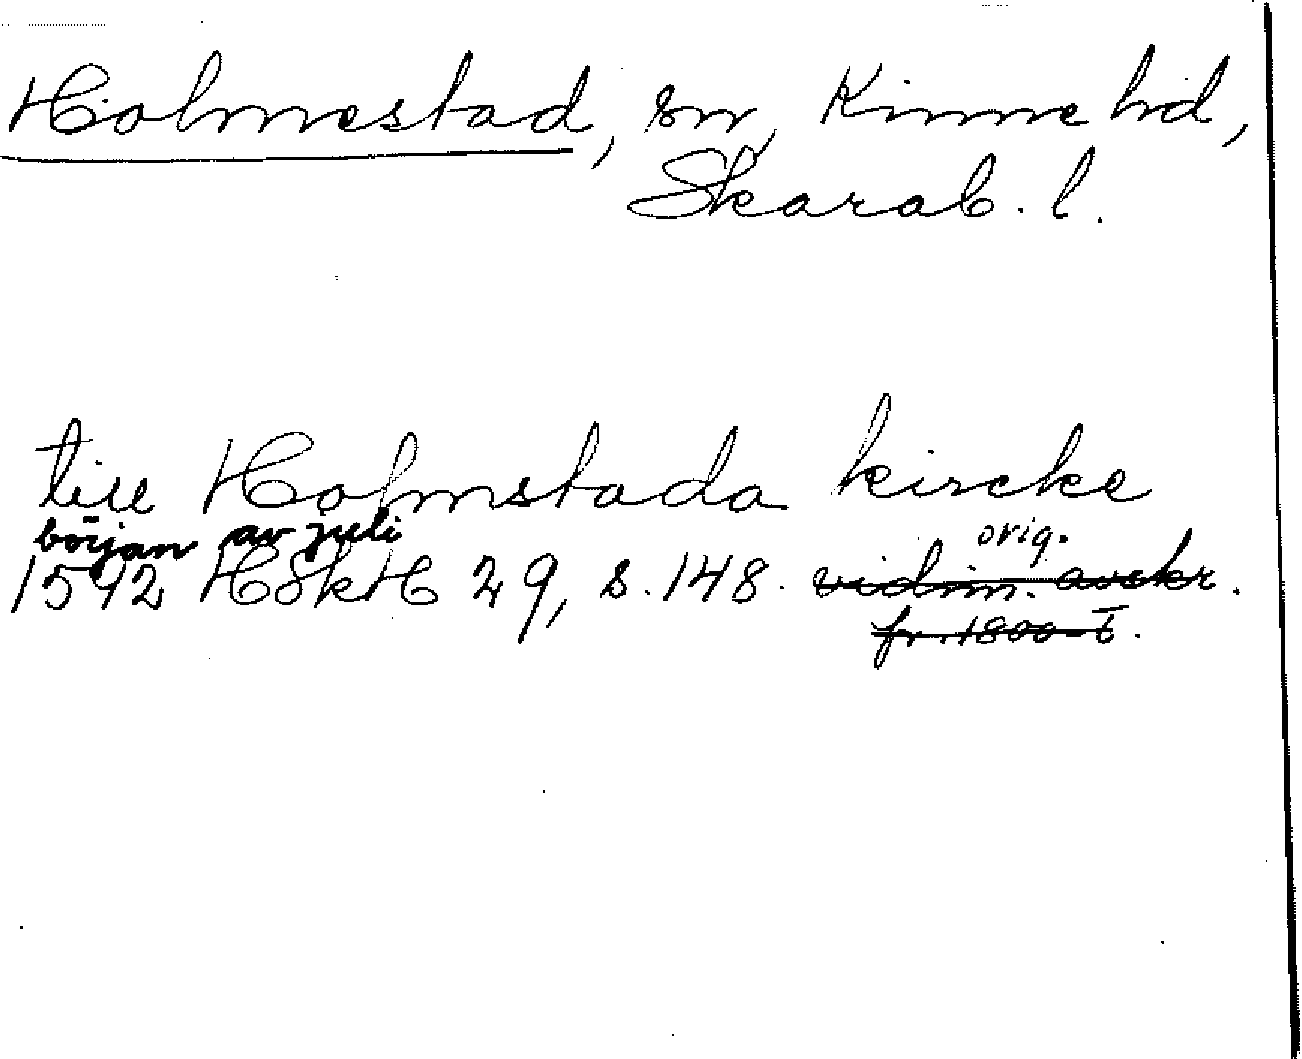 Holmestad, sn, Kinne hd,
Skarab. l.
till Holmstada kircke
början av juli
orig.
1592 HSkH 29, s. 148. vidim. avskr.
fr. 1800-t.